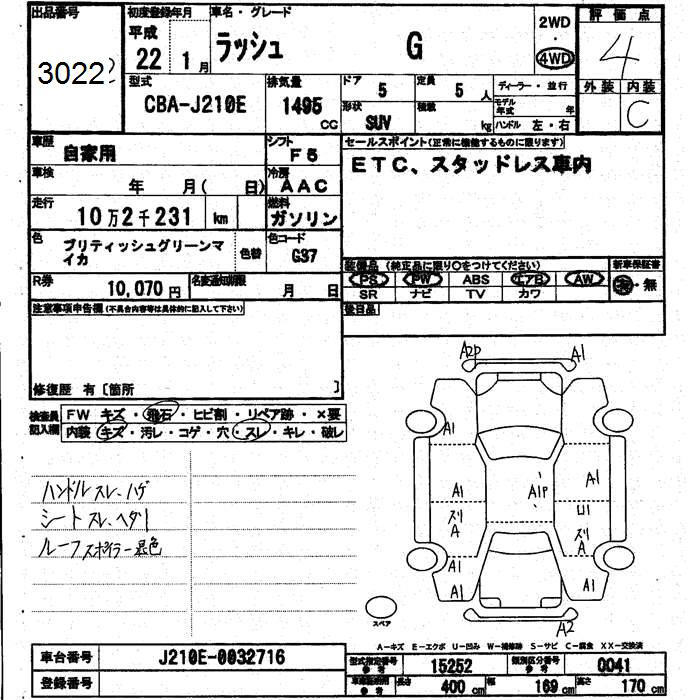 出品番号
3022
初度登録年月
平成
22 1月
車名・グレード
ラッシュ G
2WD
・
4WD
評価点
4
外装 内装
C
型式
CBA-J210E
排気量
1495
CC
ドア 5
定員 5 人
形状
SUV
積載
kg
ディーラー・並行
モデル年式 年
ハンドル 左・右
車歴
自家用
シフト
F5
セールスポイント(正常に機能するものに限ります)
ETC、スタッドレス車内
車検
年 月( 日)
冷房
AAC
走行
10万2千231 km
燃料
ガソリン
色
ブリティッシュグリーンマイカ
色替
色コード
G37
装備品 (純正品に限り○をつけてください)
新車保証書
PS PW ABS エアB AW
有・無
SR ナビ TV カワ
R券
10,070 円
名変通知期限
月 日
後日品
注意事項申告欄(不具合内容等は具体的に記入して下さい)
修復歴 有〔箇所 〕
検査員記入欄
FW キズ・飛石・ヒビ割・リペア跡・×要
内装 キズ・汚レ・コゲ・穴・スレ・キレ・破レ
ハンドルスレ、ハゲ
シートスレ、ヘタリ
ルーフスポイラー退色
A2P
A1
A1
A1
スリ
A
A1
A1
A1P
A1
U1
スリ
A
A1
A2
スペア
A―キズ E―エクボ U―凹み W―補修跡 S―サビ C―腐食 XX―交換済
車台番号
J210E-0032716
登録番号
型式指定番号
参考
15252
類別区分番号
参考
0041
参考
長さ
400 cm
幅
169 cm
高さ
170 cm